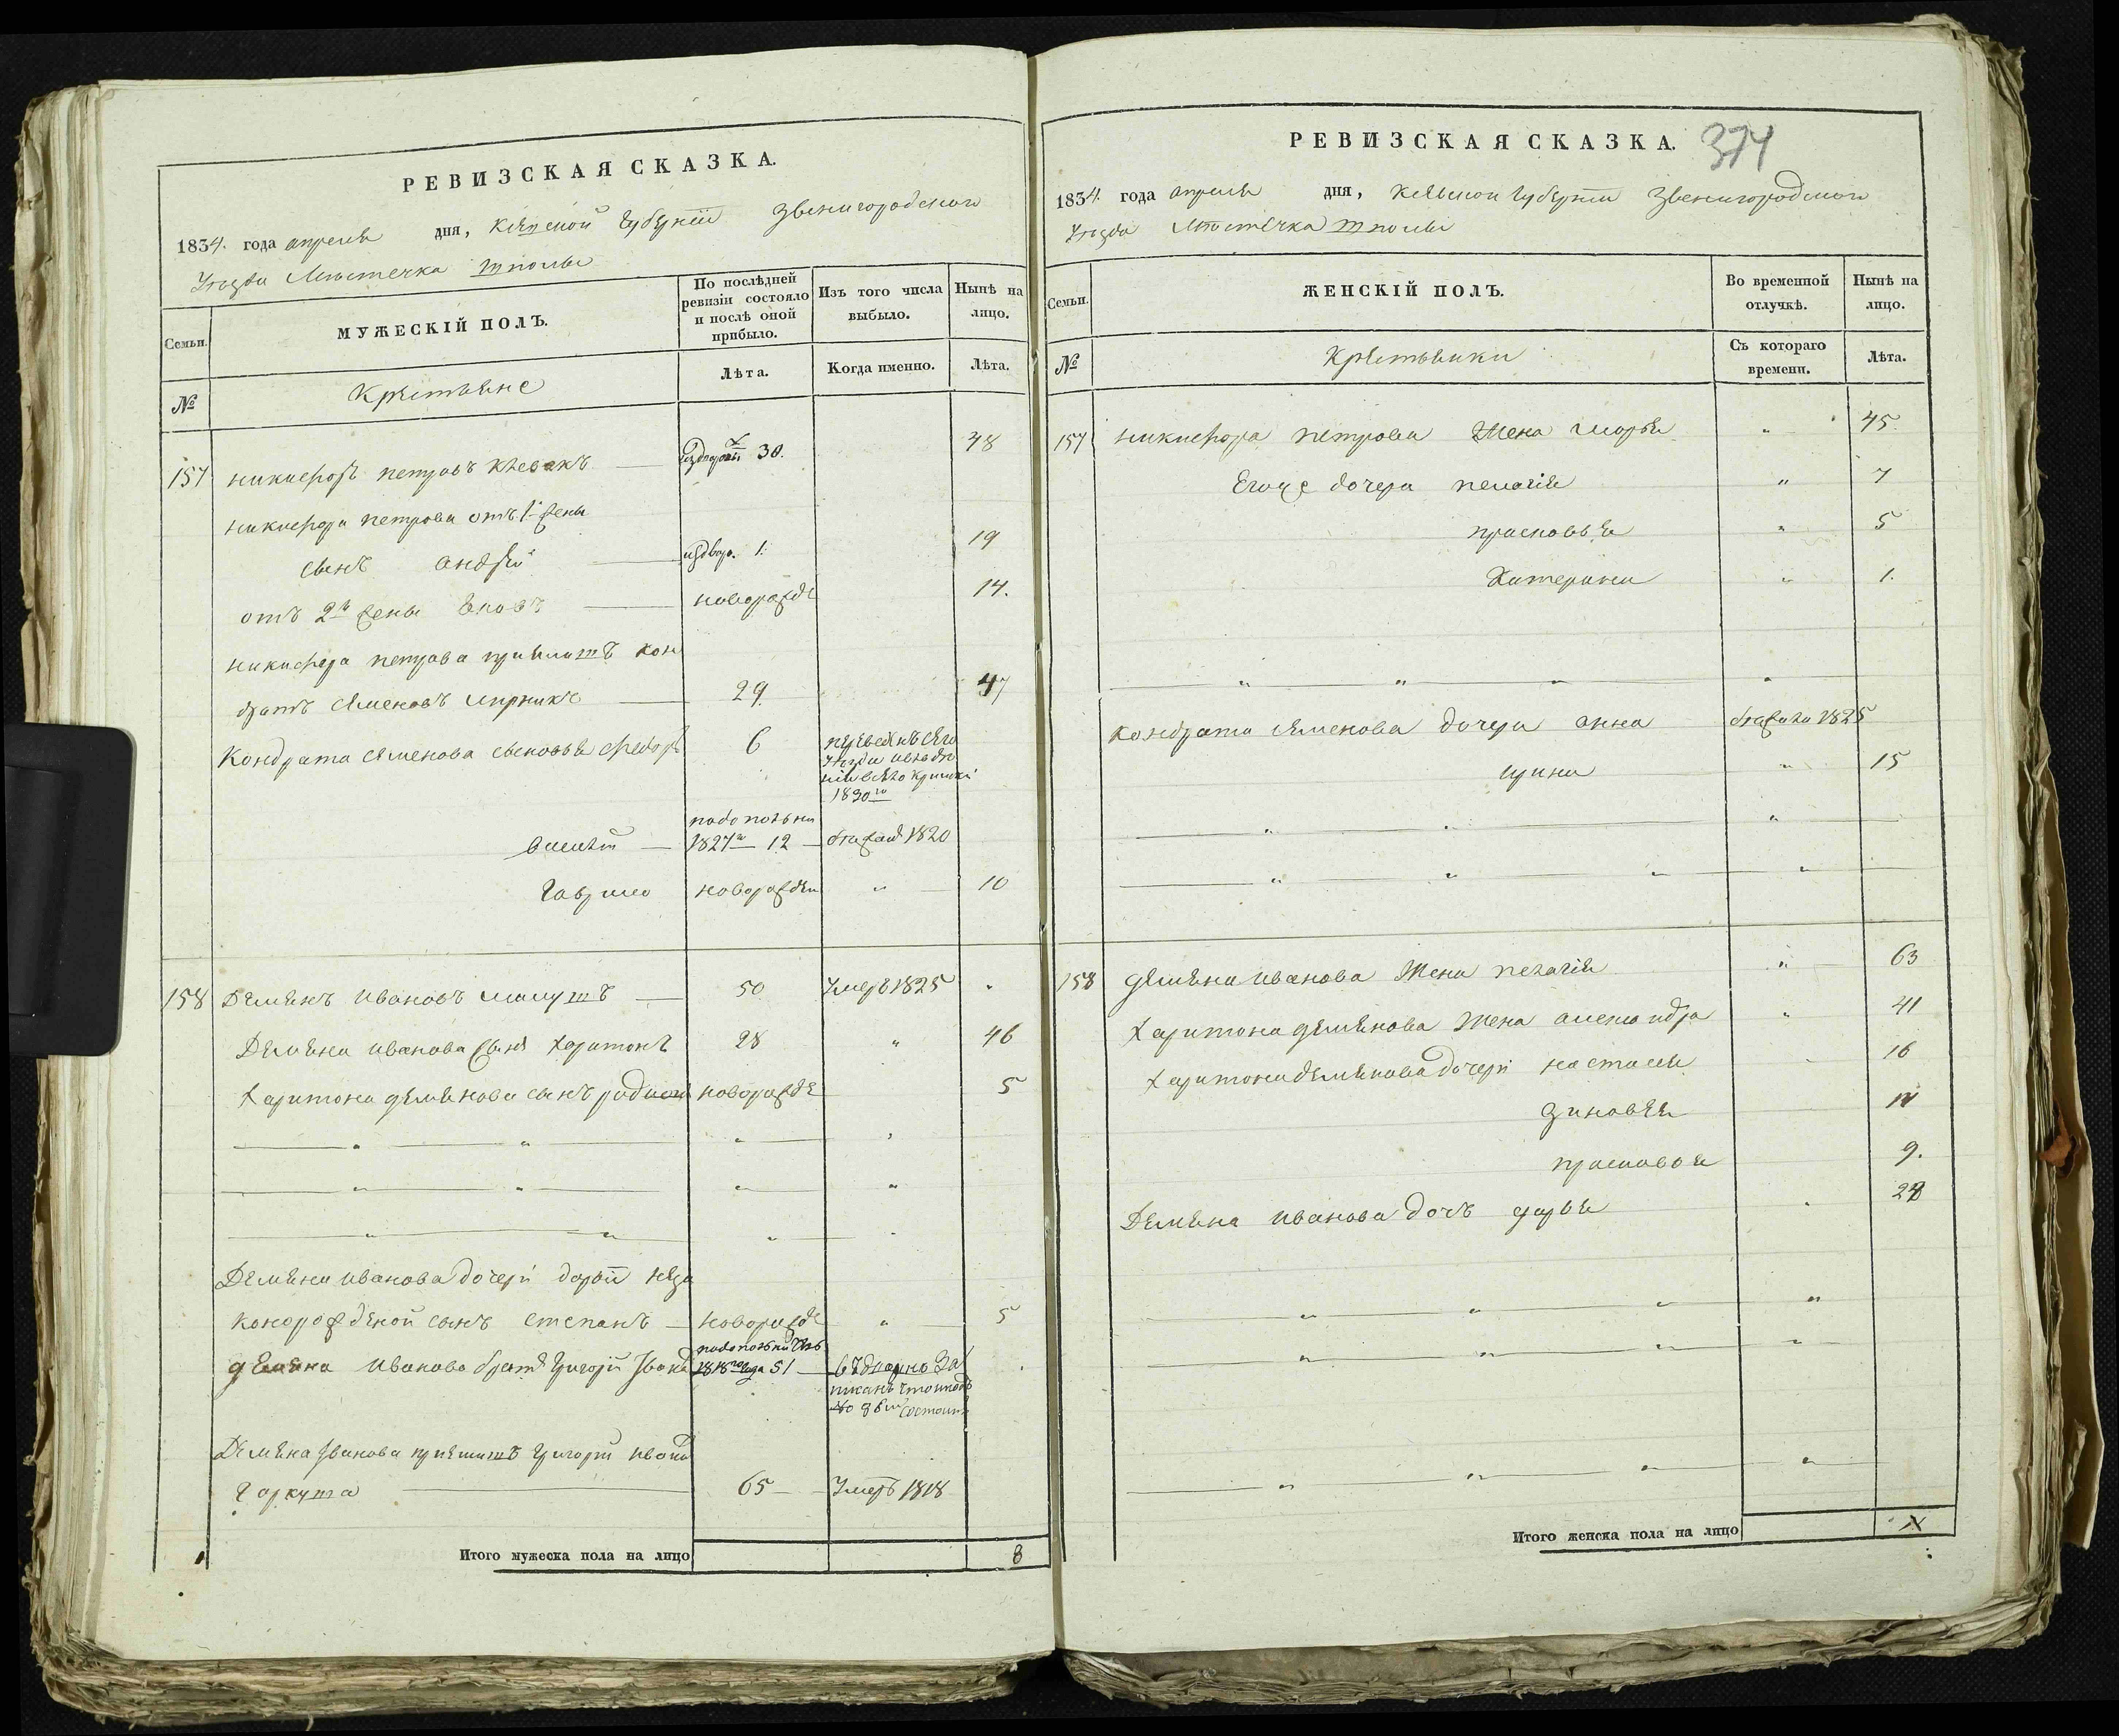 РЕВИЗСКАЯ СКАЗКА.
1834. года апреля дня, Киевской Губернии Звенигородскаго
Уезда Местечка Шполы
Семьи.
МУЖЕСКІЙ ПОЛЪ.
По послѣдней ревизіи состояло и послѣ оной прибыло.
Изъ того числа выбыло.
Нынѣ на лицо.
№
Крестьяне
Лѣта.
Когда именно.
Лѣта.
157 Никифоръ Петровъ 30. 48
Никифора Петрова отъ 1й жены
сынъ Андрей 1. 19
отъ 2й жены новорожде 14.
Никифора Петрова приймитъ Кон
дратъ Семеновъ Мирникъ 29 47
Кондрата Семенова сыновья Федоръ 6
1830го
1827го 12 1820
Гаврило новорожден " 10
158 Демьянъ Ивановъ 50 Умеръ 1825 "
Демьяна Иванова сынъ Харитонъ 28 " 46
Харитона Демьянова сынъ Родионъ новорожде 5
Демьяна Иванова дочери Дарьи неза
конорожденой сынъ Степанъ новорожде " 5
Демьяна Иванова братъ Григорій
1818го года 51
Демьяна Иванова приймитъ Григорій Ивано
Гаркуша 65 Умеръ 1818
Итого мужеска пола на лицо 8
РЕВИЗСКАЯ СКАЗКА. 374
1834. года апреля дня, Киевской Губернии Звенигородскаго
Уезда Местечка Шполы
Семьи.
ЖЕНСКІЙ ПОЛЪ.
Во временной отлучкѣ.
Нынѣ на лицо.
№
Крестьянки
Съ котораго времени.
Лѣта.
157 Никифора Петрова жена Марья " 45
Егоже дочери Пелагія " 7
Прасковья " 5
Катерина " 1.
Кондрата Семенова дочери Анна 1825
Ирина " 15
158 Демьяна Иванова жена Пелагія " 63
Харитона Демьянова жена Александра " 41
Харитона Демьянова дочери Настасья 16
Зиновья
Прасковья 9.
Демьяна Иванова дочь Дарья
Итого женска пола на лицо